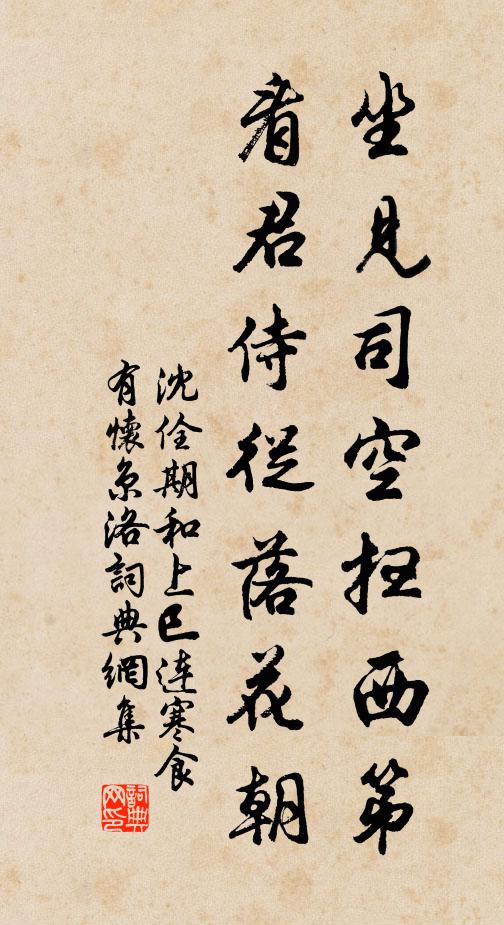 坐見司空扫西第
看君侍從落花朝
沈佺期和上巳连寒食
有懷京洛詞典網集
詞典
网印